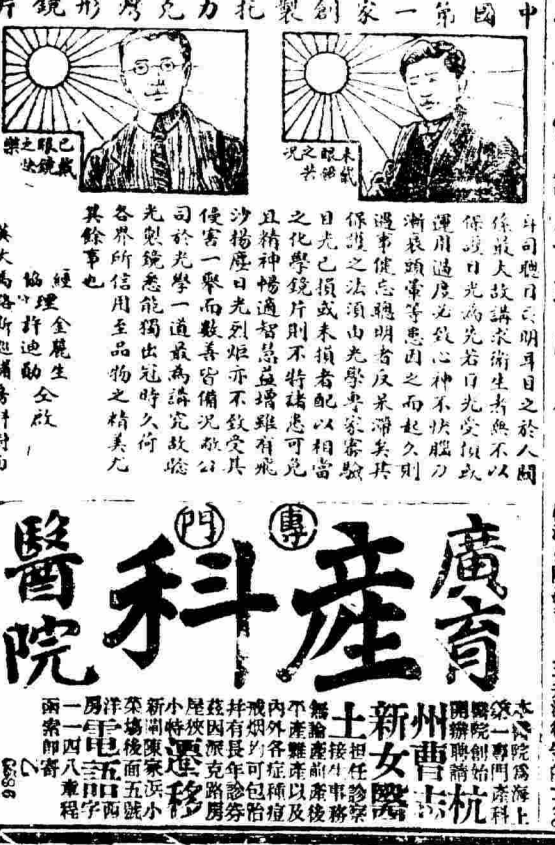 中國第一家創製托力克灣形鏡片
未戴眼鏡之苦況
已戴眼鏡之快樂
斗司聰日司明耳目之於人關
係最大故講求衛生者無不以
保護目光為先若目光受損或
運用過度必致心神不快腦力
漸衰頭暈等患因之而起久則
遇事健忘聰明者反呆滯矣其
保護之法須由光學專家審驗
目光已損或未損者配以相當
之化學鏡片則不特諸患可免
且精神暢適智慧益增雖有飛
沙揚塵日光烈炬亦不致受其
侵害一舉而數善皆備況敝公
司於光學一道最為講究故驗
光製鏡悉能獨出冠時久荷
各界所信用至品物之精美尤
其餘事也
經理金麗生
協理許迪勳 仝啟
英大馬路
廣育
專門
產科
醫院
本醫院為海上
第一專門產科
醫院創始
開辦聘請杭
州曹志
新女醫
士担任診察
接生事務
無論產前產後
平產難產以及
內外各症種痘
戒烟均可包治
并有長年診券
茲因派克路房
屋狹小特遷移
新閘陳家浜小
菜塲後面五號
洋房電話西字
一一四八章程
函索即寄